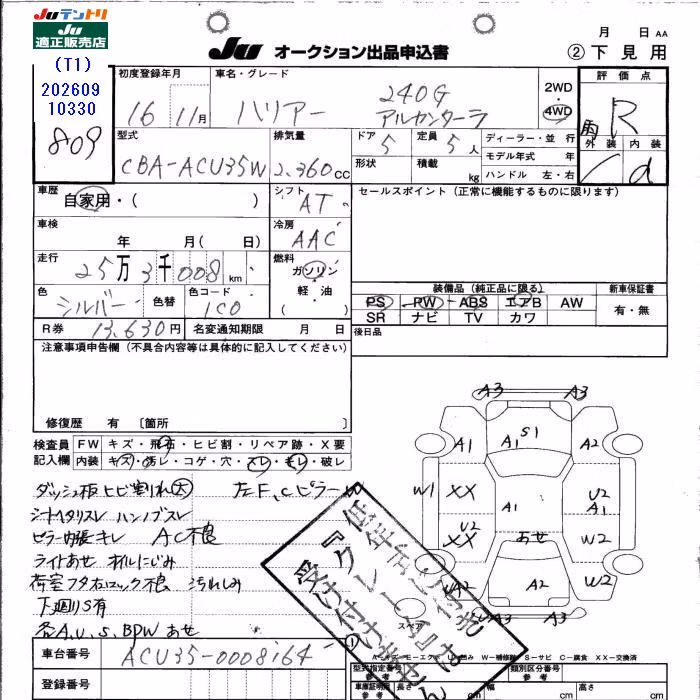 Juテントリ
Ju
適正販売店
(T1)
202609
10330
809
Ju オークション出品申込書
月 日 AA
② 下見用
初度登録年月
16 11月
車名・グレード
ハリアー 240G
アルカンターラ
2WD
4WD
評価点
R
外装 内装
d
型式
CBA-ACU35W
排気量
2.360cc
ドア 5
定員 5人
形状
積載 kg
ディーラー・並行
モデル年式 年
ハンドル 左・右
車歴
自家用・( )
シフト
AT
セールスポイント(正常に機能するものに限ります)
車検
年 月( 日)
冷房
AAC
走行
25万3千008km
燃料
ガソリン
軽・油
( )
色
シルバー
色替
色コード
1C0
装備品(純正品に限る)
PS PW ABS エアB AW
SR ナビ TV カワ
新車保証書
有・無
R券 13,630円
名変通知期限 月 日
後日品
注意事項申告欄(不具合内容等は具体的に記入してください)
修復歴 有 〔箇所 〕
検査員
記入欄
FW キズ・飛石・ヒビ割・リペア跡・X要
内装 キズ・汚レ・コゲ・穴・スレ・キレ・破レ
ダッシュ板ヒビ割れ大 左F,Cピラー
シートヘタリスレ ハンノブスレ
ピラー内張キレ AC不良
ライトあせ オイルにじみ
荷室フタ右ロック不良 汚れしみ
下廻りS有
各A,U,S,BPWあせ
A3 A3
A1 A1 S1 A2
W1 XX A1 U2 A1
U2 XX あせ W2
A2 W2
A3
スペア
『クレーム』は
受け付けません
車台番号 ACU35-0008164
登録番号
型式指定番号
参考
類別区分番号
参考
長さ cm
幅 cm